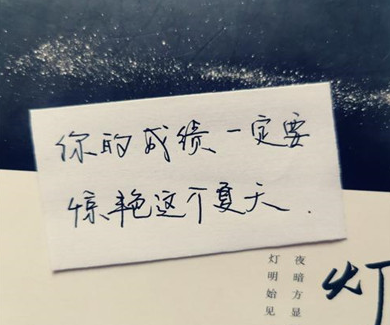 你的成绩一定要
惊艳这个夏天.
夜暗方显
灯明始见
灯